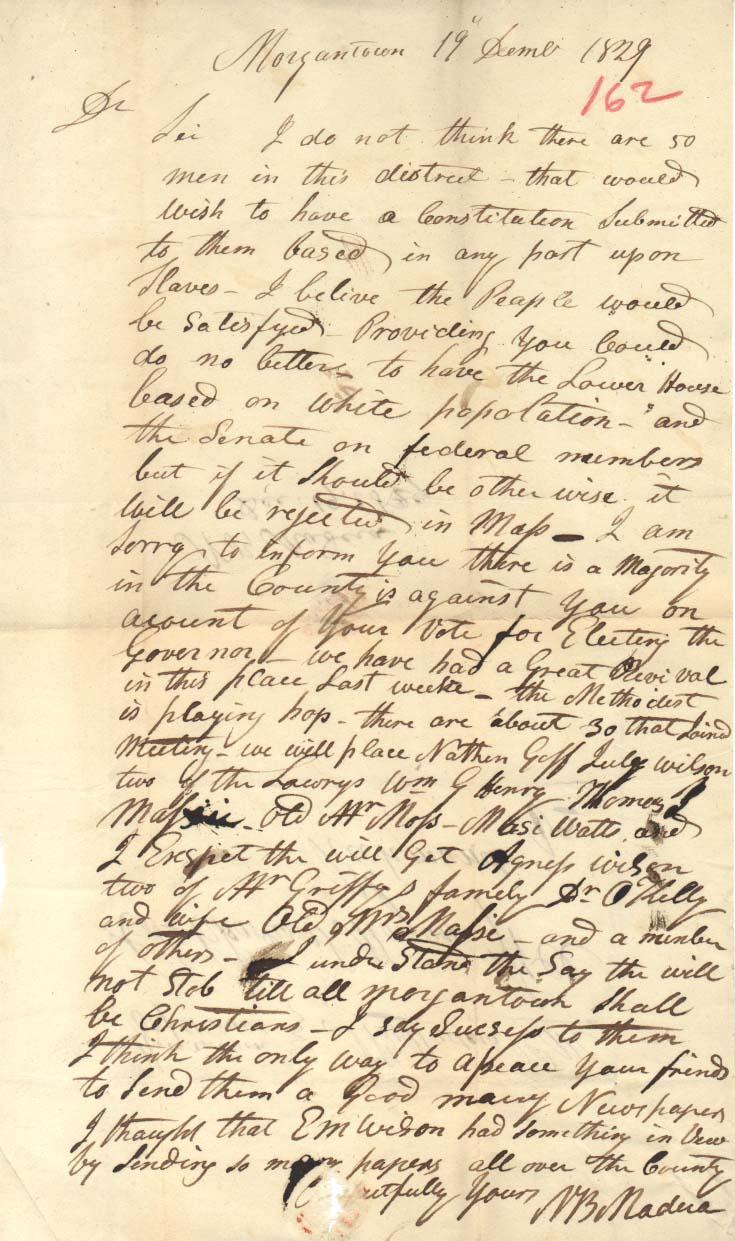 Morgantown 19" Decmb 1829
162
Dr
Sir I do not think there are 50
men in this district - that would
wish to have a Constitution Submitted
to them based in any part upon
Slaves - I belive the Peaple would
be Satisfyed - Providing You Could
do no better - to have the Lower House
based on white popolation - "and
the Senate on federal members
but if it Should be otherwise it
will be rejected in Mass - I am
Sorry to Inform You there is a Majority
in the County is against You on
acount of Your Vote for Electing the
Governor - we have had a Great Revival
in this place Last weeke - the Methodist
is playing hop - there are about 30 that Joind
Meeting - we will place Nathen Goff July wilson
two of the Lowrys Wm G Henry Thomas P
Massie - Old Mr Moss - Masi Watts and
I Exspet the will Get Agness wilson
two of Mr Griffys famely Dr O Kelly
and wife Old Mrs Massie - and a mnber
of others - I under Stand the Say the will
not Stob till all morgantown Shall
be Christians - I say Sucsess to them
I think the only way to apeace Your friends
to Send them a Good many News papers
I thaught that E M Wilson had something in View
by Sending so many papers all over the County
Yours N B Madera